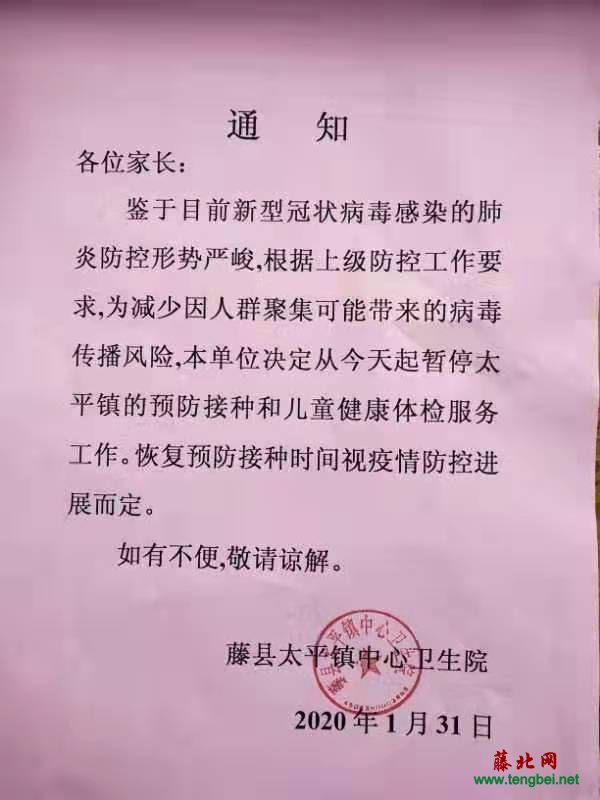 通 知
各位家长：
鉴于目前新型冠状病毒感染的肺
炎防控形势严峻,根据上级防控工作要
求,为减少因人群聚集可能带来的病毒
传播风险,本单位决定从今天起暂停太
平镇的预防接种和儿童健康体检服务
工作。恢复预防接种时间视疫情防控进
展而定。
如有不便,敬请谅解。
藤县太平镇中心卫生院
藤县太平镇中心卫生院
2020 年 1 月 31 日
藤北网
www.tengbei.net